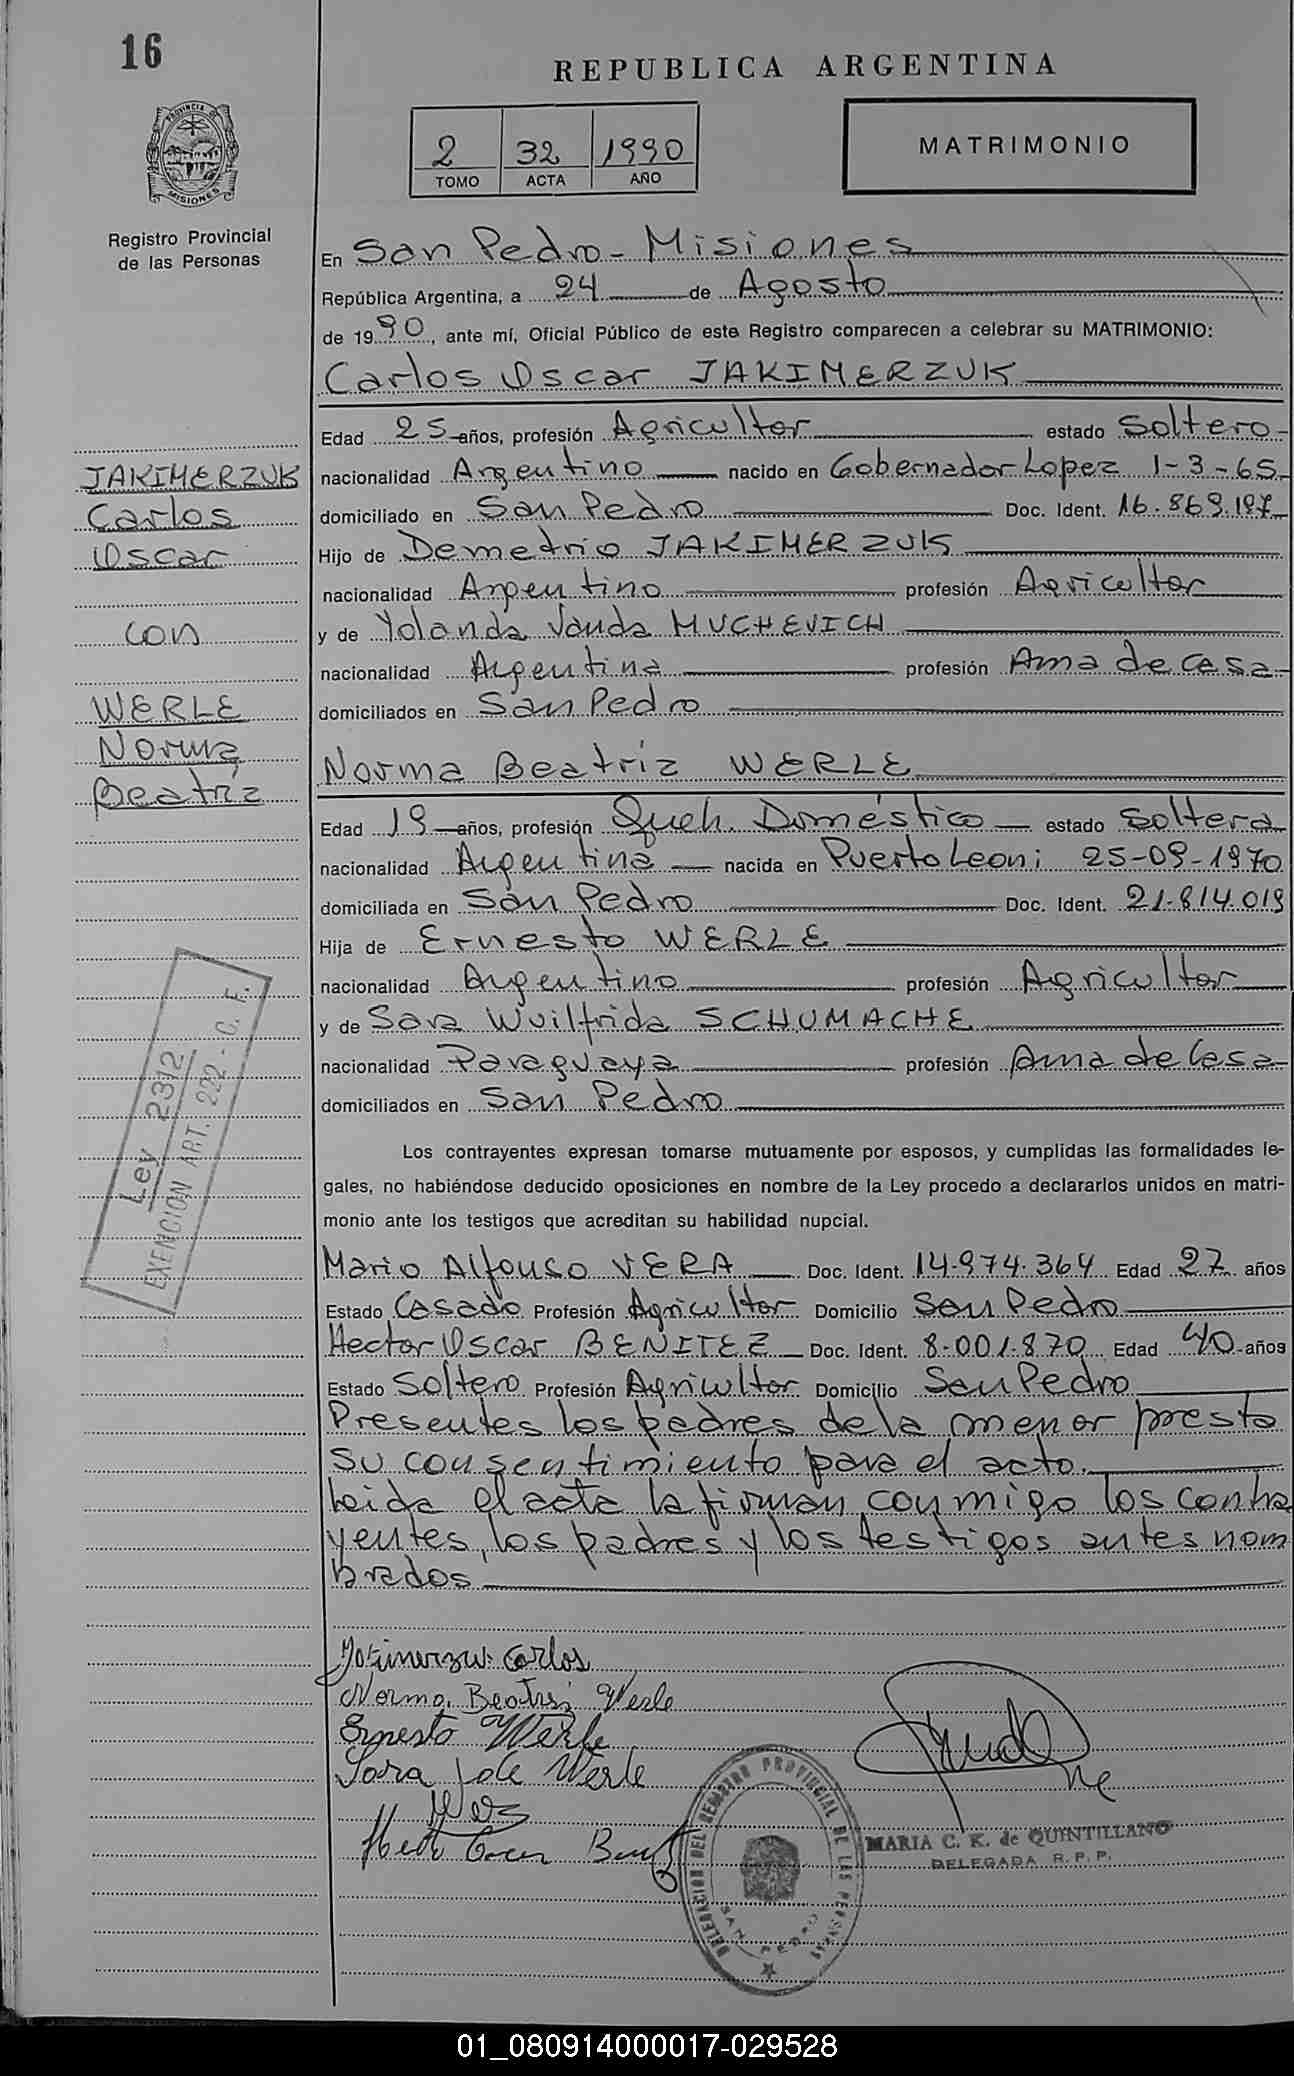 16
REPUBLICA ARGENTINA
PROVINCIA DE
MISIONES
Registro Provincial
de las Personas
2 32 1990
TOMO ACTA AÑO
MATRIMONIO
En San Pedro - Misiones
República Argentina, a 24 de Agosto
de 1990, ante mí, Oficial Público de este Registro comparecen a celebrar su MATRIMONIO:
Carlos Oscar JAKIMERZUK
Edad 25 años, profesión Agricultor estado Soltero
JAKIMERZUK
Carlos
Oscar
con
WERLE
Norma
Beatriz
nacionalidad Argentino nacido en Gobernador Lopez 1-3-65
domiciliado en San Pedro Doc. Ident. 16.869.197
Hijo de Demetrio JAKIMERZUK
nacionalidad Argentino profesión Agricultor
y de Yolanda Vanda MUCHEVICH
nacionalidad Argentina profesión Ama de Casa
domiciliados en San Pedro
Norma Beatriz WERLE
Edad 19 años, profesión Queh. Doméstico estado Soltera
nacionalidad Argentina nacida en Puerto Leoni 25-09-1970
domiciliada en San Pedro Doc. Ident. 21.814.019
Hija de Ernesto WERLE
nacionalidad Argentino profesión Agricultor
y de Sara Wuilfrida SCHUMACHE
nacionalidad Paraguaya profesión Ama de Casa
domiciliados en San Pedro
Ley 2312
EXENCION ART. 222 - C. F.
Los contrayentes expresan tomarse mutuamente por esposos, y cumplidas las formalidades le-
gales, no habiéndose deducido oposiciones en nombre de la Ley procedo a declararlos unidos en matri-
monio ante los testigos que acreditan su habilidad nupcial.
Mario Alfonso VERA Doc. Ident. 14.974.364 Edad 27 años
Estado Casado Profesión Agricultor Domicilio San Pedro
Hector Oscar BENITEZ Doc. Ident. 8.001.870 Edad 40 años
Estado Soltero Profesión Agricultor Domicilio San Pedro
Presentes los padres de la menor presta
su consentimiento para el acto.
Leida el acta la firman conmigo los contra
yentes, los padres y los testigos antes nom
brados
Carlos
Norma Beatriz Werle
Ernesto Werle
Sara de Werle
MARIA C. K. de QUINTILLANO
DELEGADA R. P. P.
DELEGACION DEL REGISTRO PROVINCIAL DE LAS PERSONAS
SAN PEDRO
01_080914000017-029528